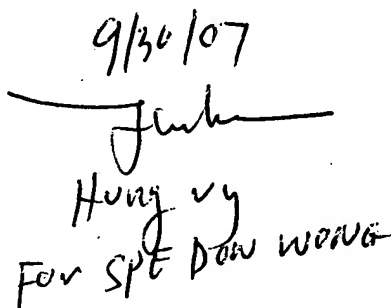 9/30/07
Hung Vy
For SPE Don Wong